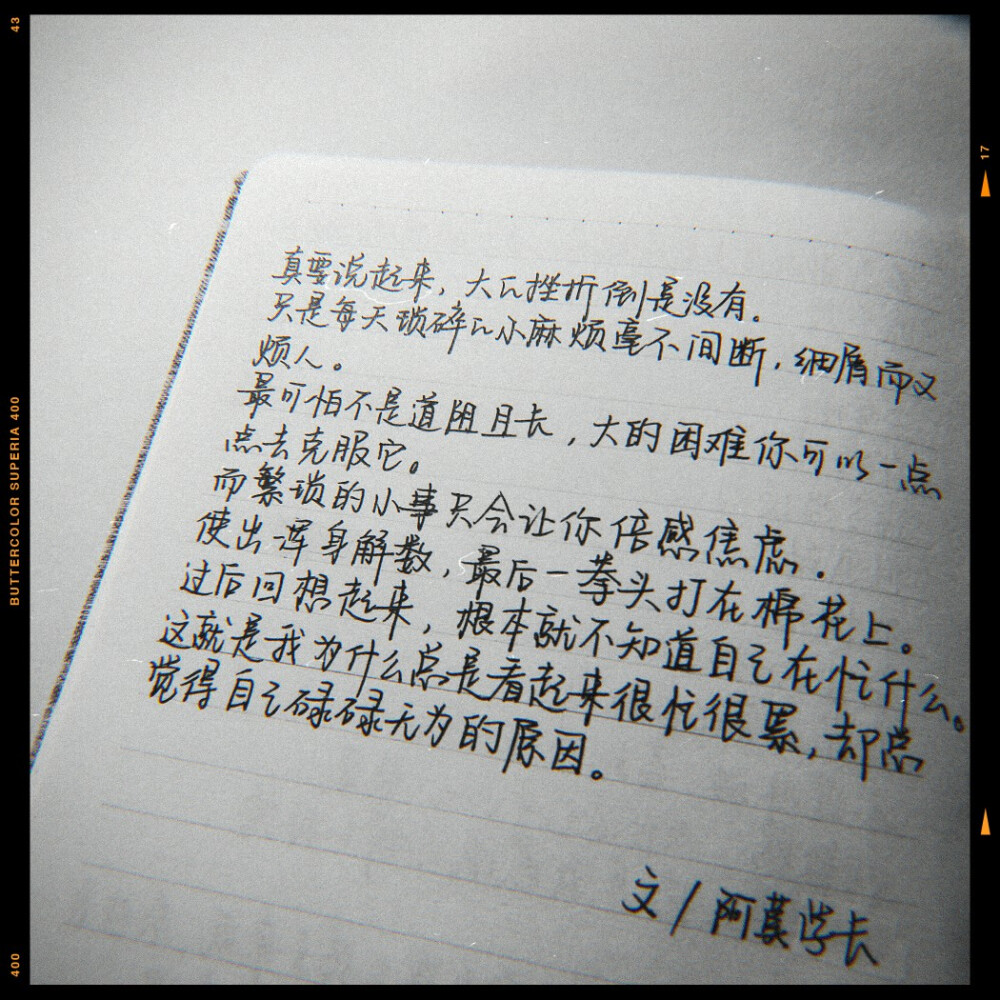 43
17
BUTTERCOLOR SUPERIA 400
400
真要说起来，大的挫折倒是没有。
只是每天琐碎的小麻烦毫不间断，细屑而又
烦人。
最可怕不是道阻且长，大的困难你可以一点
点去克服它。
而繁琐的小事只会让你倍感焦虑．
使出浑身解数，最后一拳头打在棉花上。
过后回想起来，根本就不知道自己在忙什么。
这就是我为什么总是看起来很忙很累，却总
觉得自己碌碌无为的原因。
文/阿莫学长